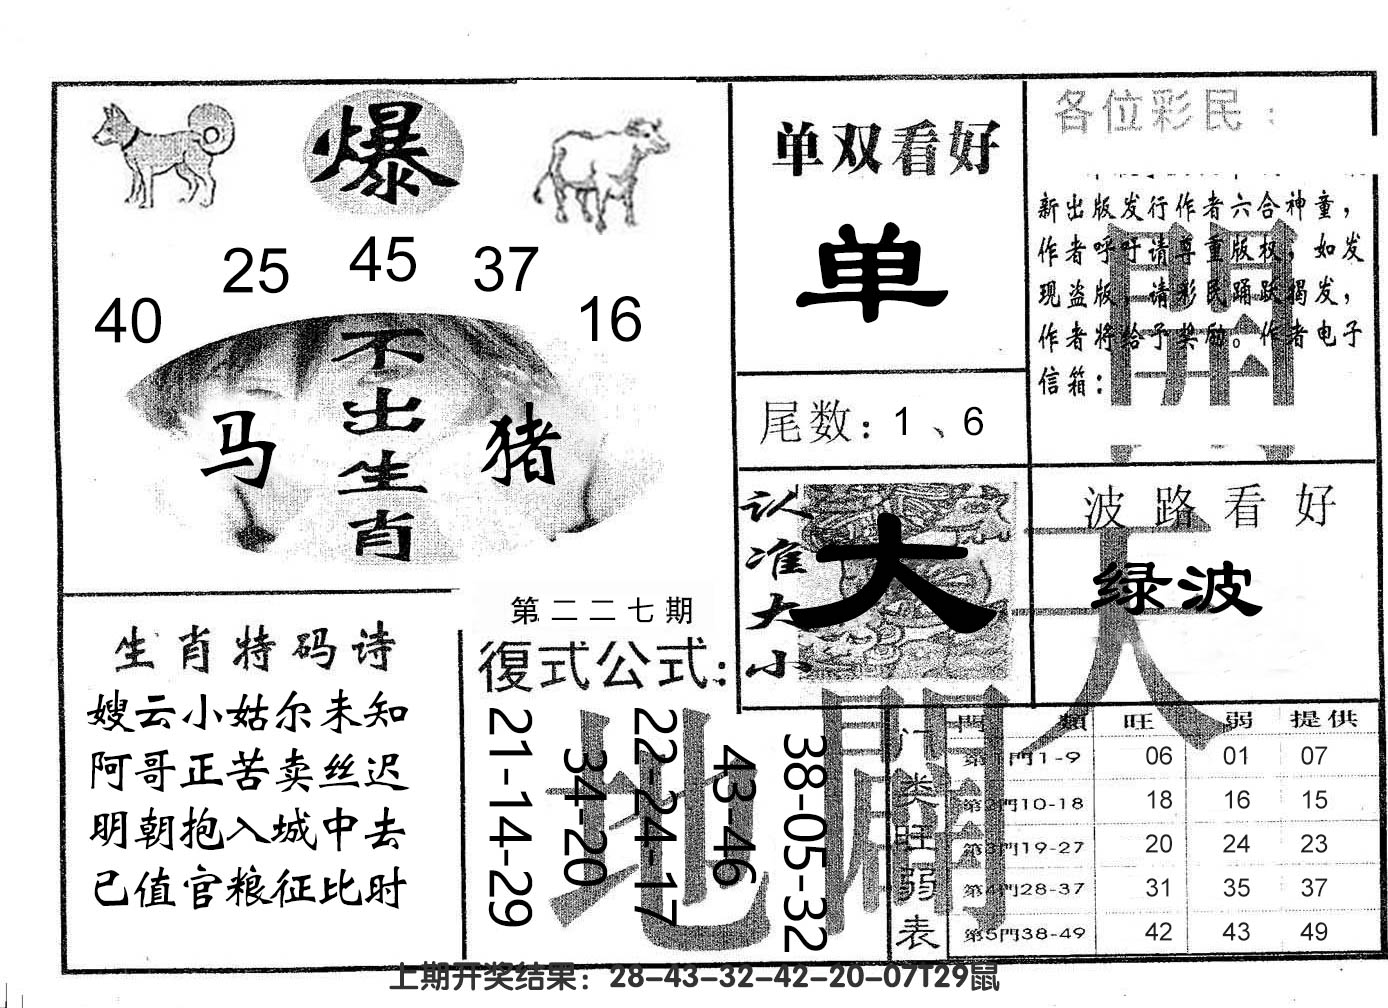 爆
40 25 45 37 16
不出生肖
马 猪
单双看好
单
尾数：1、6
各位彩民：
新出版发行作者六合神童，
作者呼吁请尊重版权，如发
现盗版，请彩民踊跃揭发，
作者将给予奖励。作者电子
信箱：
開
认准大小
大
波路看好
绿波
天
生肖特码诗
嫂云小姑尔未知
阿哥正苦卖丝迟
明朝抱入城中去
已值官粮征比时
第二二七期
復式公式：
21-14-29
34-20
22-24-17
43-46
38-05-32
地
闢
门类旺弱表
門類 旺 弱 提供
第1門1-9 06 01 07
第2門10-18 18 16 15
第3門19-27 20 24 23
第4門28-37 31 35 37
第5門38-49 42 43 49
上期开奖结果：28-43-32-42-20-07T29鼠